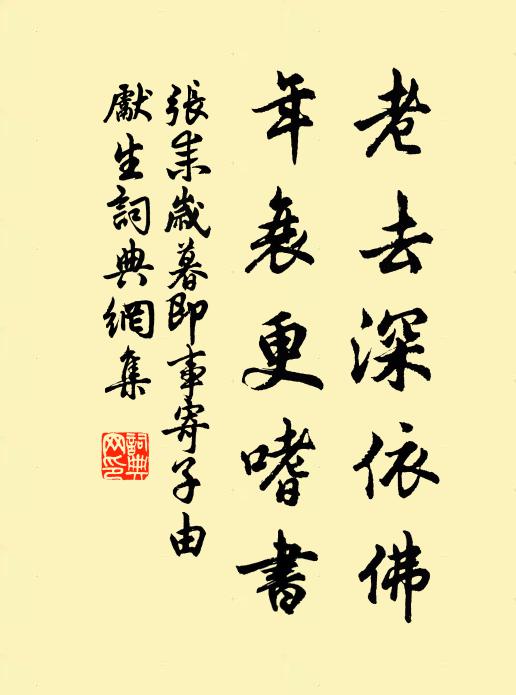 老去深依佛
年衰更嗜書
張耒歲暮即事寄子由
獻生詞典網集
詞典網印